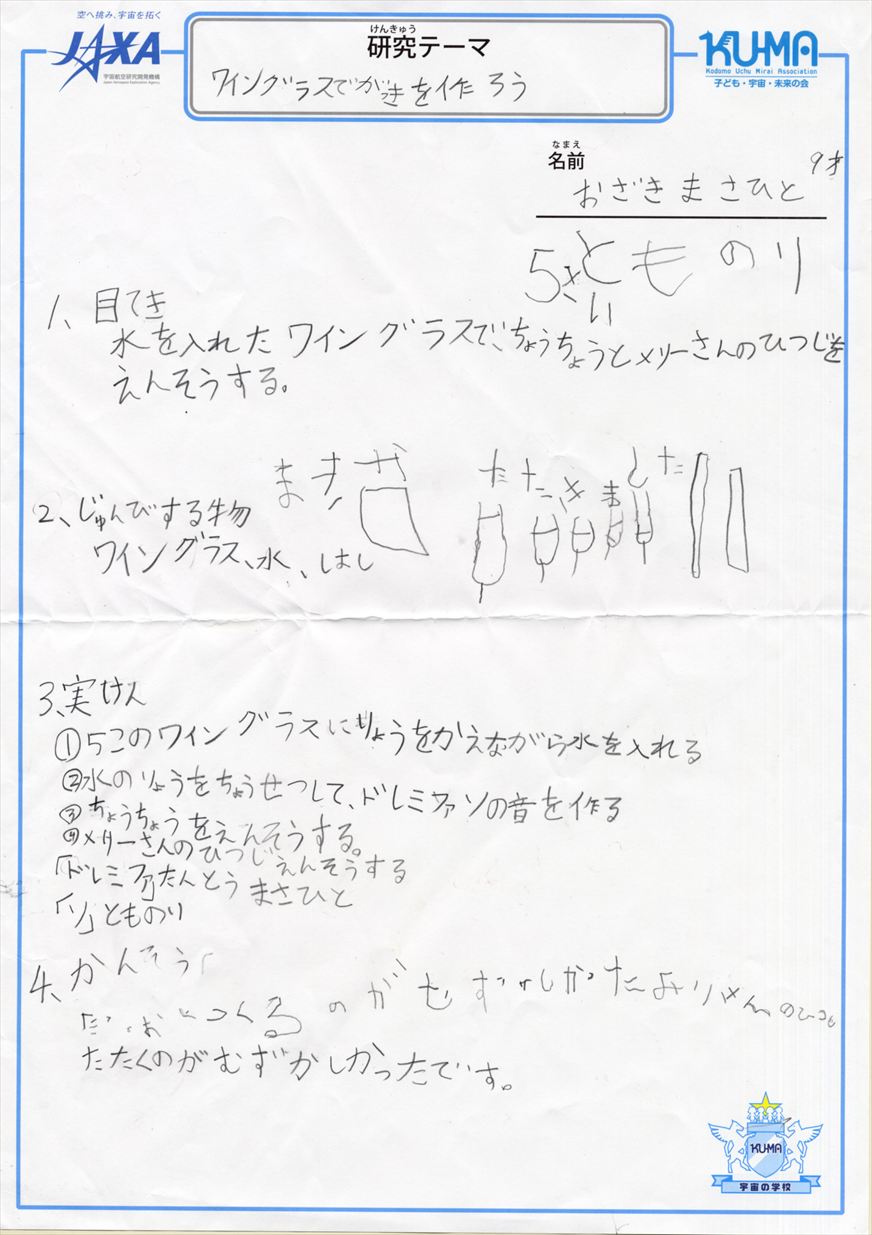 空へ挑み、宇宙を拓く
JAXA
宇宙航空研究開発機構
Japan Aerospace Exploration Agency
けんきゅう
研究テーマ
ワイングラスでがっきを作ろう
KU-MA
Kodomo Uchu Mirai Association
子ども・宇宙・未来の会
なまえ
名前
おざきまさひと 9才
とものり
5さい
1、目てき
水を入れたワイングラスで、ちょうちょうとメリーさんのひつじを
えんそうする。
2、じゅんびする物
ワイングラス、水、はし
たたきました
3、実けん
①5このワイングラスにりょうをかえながら水を入れる
②水のりょうをちょうせつして、ドレミファソの音を作る
③ちょうちょうをえんそうする。
④メリーさんのひつじえんそうする
「ドレミファ」たんとうまさひと
「ソ」とものり
4、かんそう
つくるのがむずかしかった
たたくのがむずかしかったです。
KU-MA
宇宙の学校